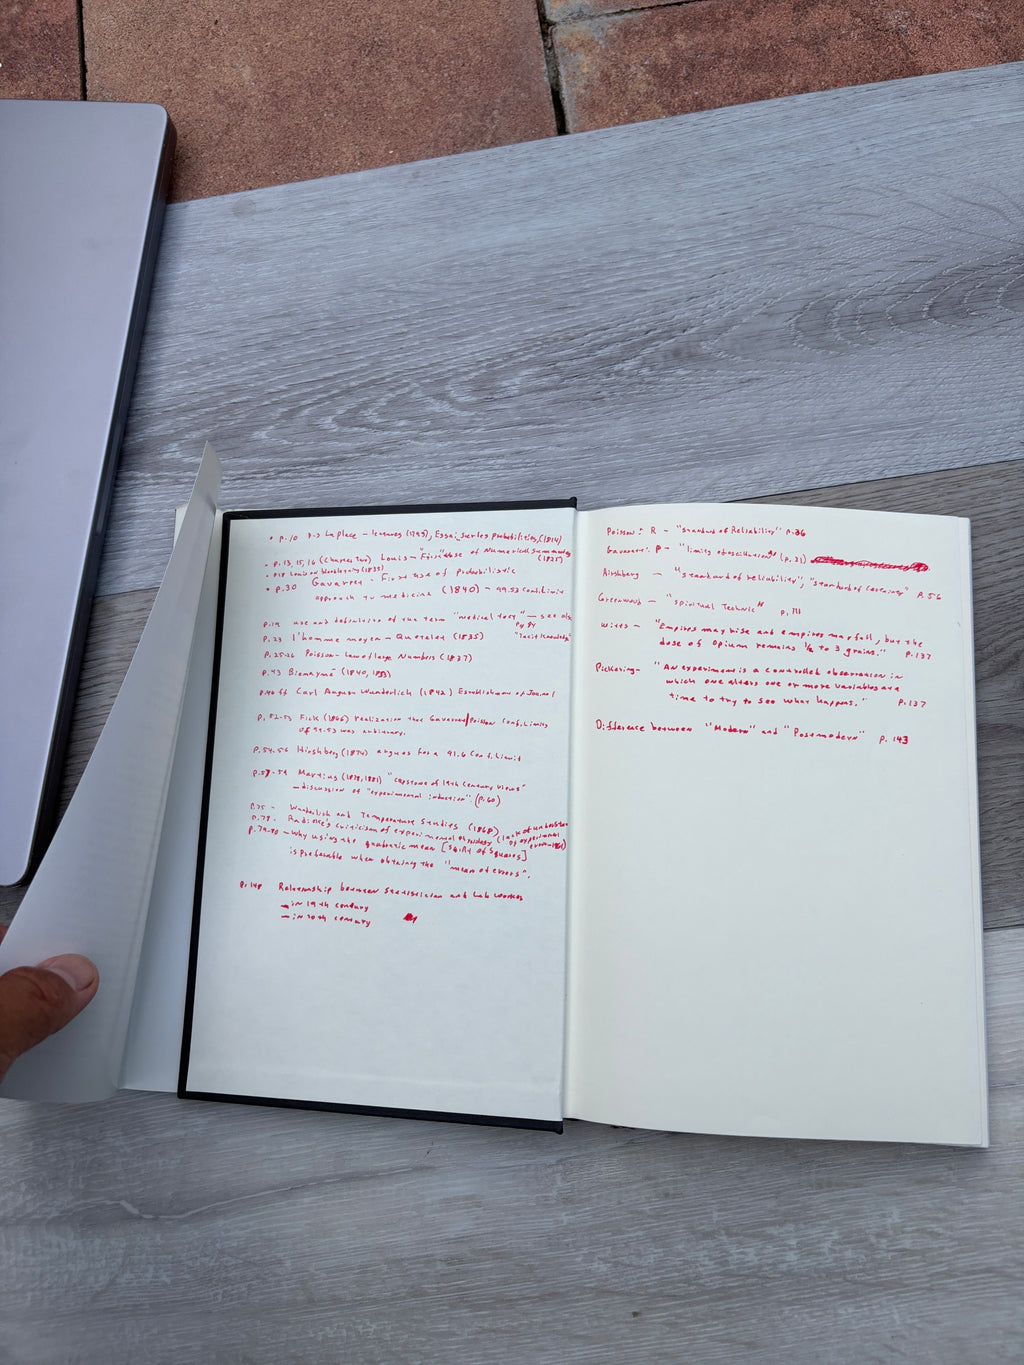 • P. 10 P-S Laplace - lectures (1795), Essai sur les probabilities, (1814)
- P. 13, 15, 16 (Chapter Two) Louis - "First" use of Numerical Summaries (1825)
- P. 18 Louis on bloodletting (1835)
• P. 30 Gavarret - First use of Probabilistic
approach to medicine (1840) - 99.53 Conf. Limit
P. 19 use and definition of the term "medical tact" - see also
"Tacit Knowledge"
P. 23 l'homme moyen - Quetelet (1835)
P. 25-26 Poisson - Law of large Numbers (1837)
P. 43 Bienaymé (1840, )
P. 40 ff Carl August Wunderlich (1842) Establishment of Journal
P. 52-53 Fick (1866) realization that Gavarret/Poisson Conf. Limits
of 99.53 was arbitrary.
P. 54-56 Hirshberg (1874) argues for a 91.6 Conf. Limit
P. 57-59 Martius (1878, 1881) "capstone of 19th Century views"
- discussion of "experimental induction". (P. 60)
P. 75 - Wunderlich and Temperature Studies (1868)
P. 78. Radicke's criticism of experimental Physiology (lack of understanding of experimental error-1861)
P. 79-80 - Why using the quadratic mean [sqrt of squares]
is preferable when obtaining the "mean of errors".
P. 148 Relationship between Statistician and Lab Worker
- in 19th century
- in 20th century
Poisson: R - "Standard of Reliability" P. 36
Gavarret: P - "limits of oscillation" (p. 31)
Hirshberg - "standard of reliability", "standard of certainty" P. 56
Greenwood - "Spiritual Technic" P. 111
Witts - "Empires may rise and empires may fall, but the
dose of Opium remains 1/2 to 3 grains." P. 137
Pickering - "An experiment is a controlled observation in
which one alters one or more variables at a
time to try to see what happens." P. 137
Difference between "Modern" and "Postmodern" P. 143